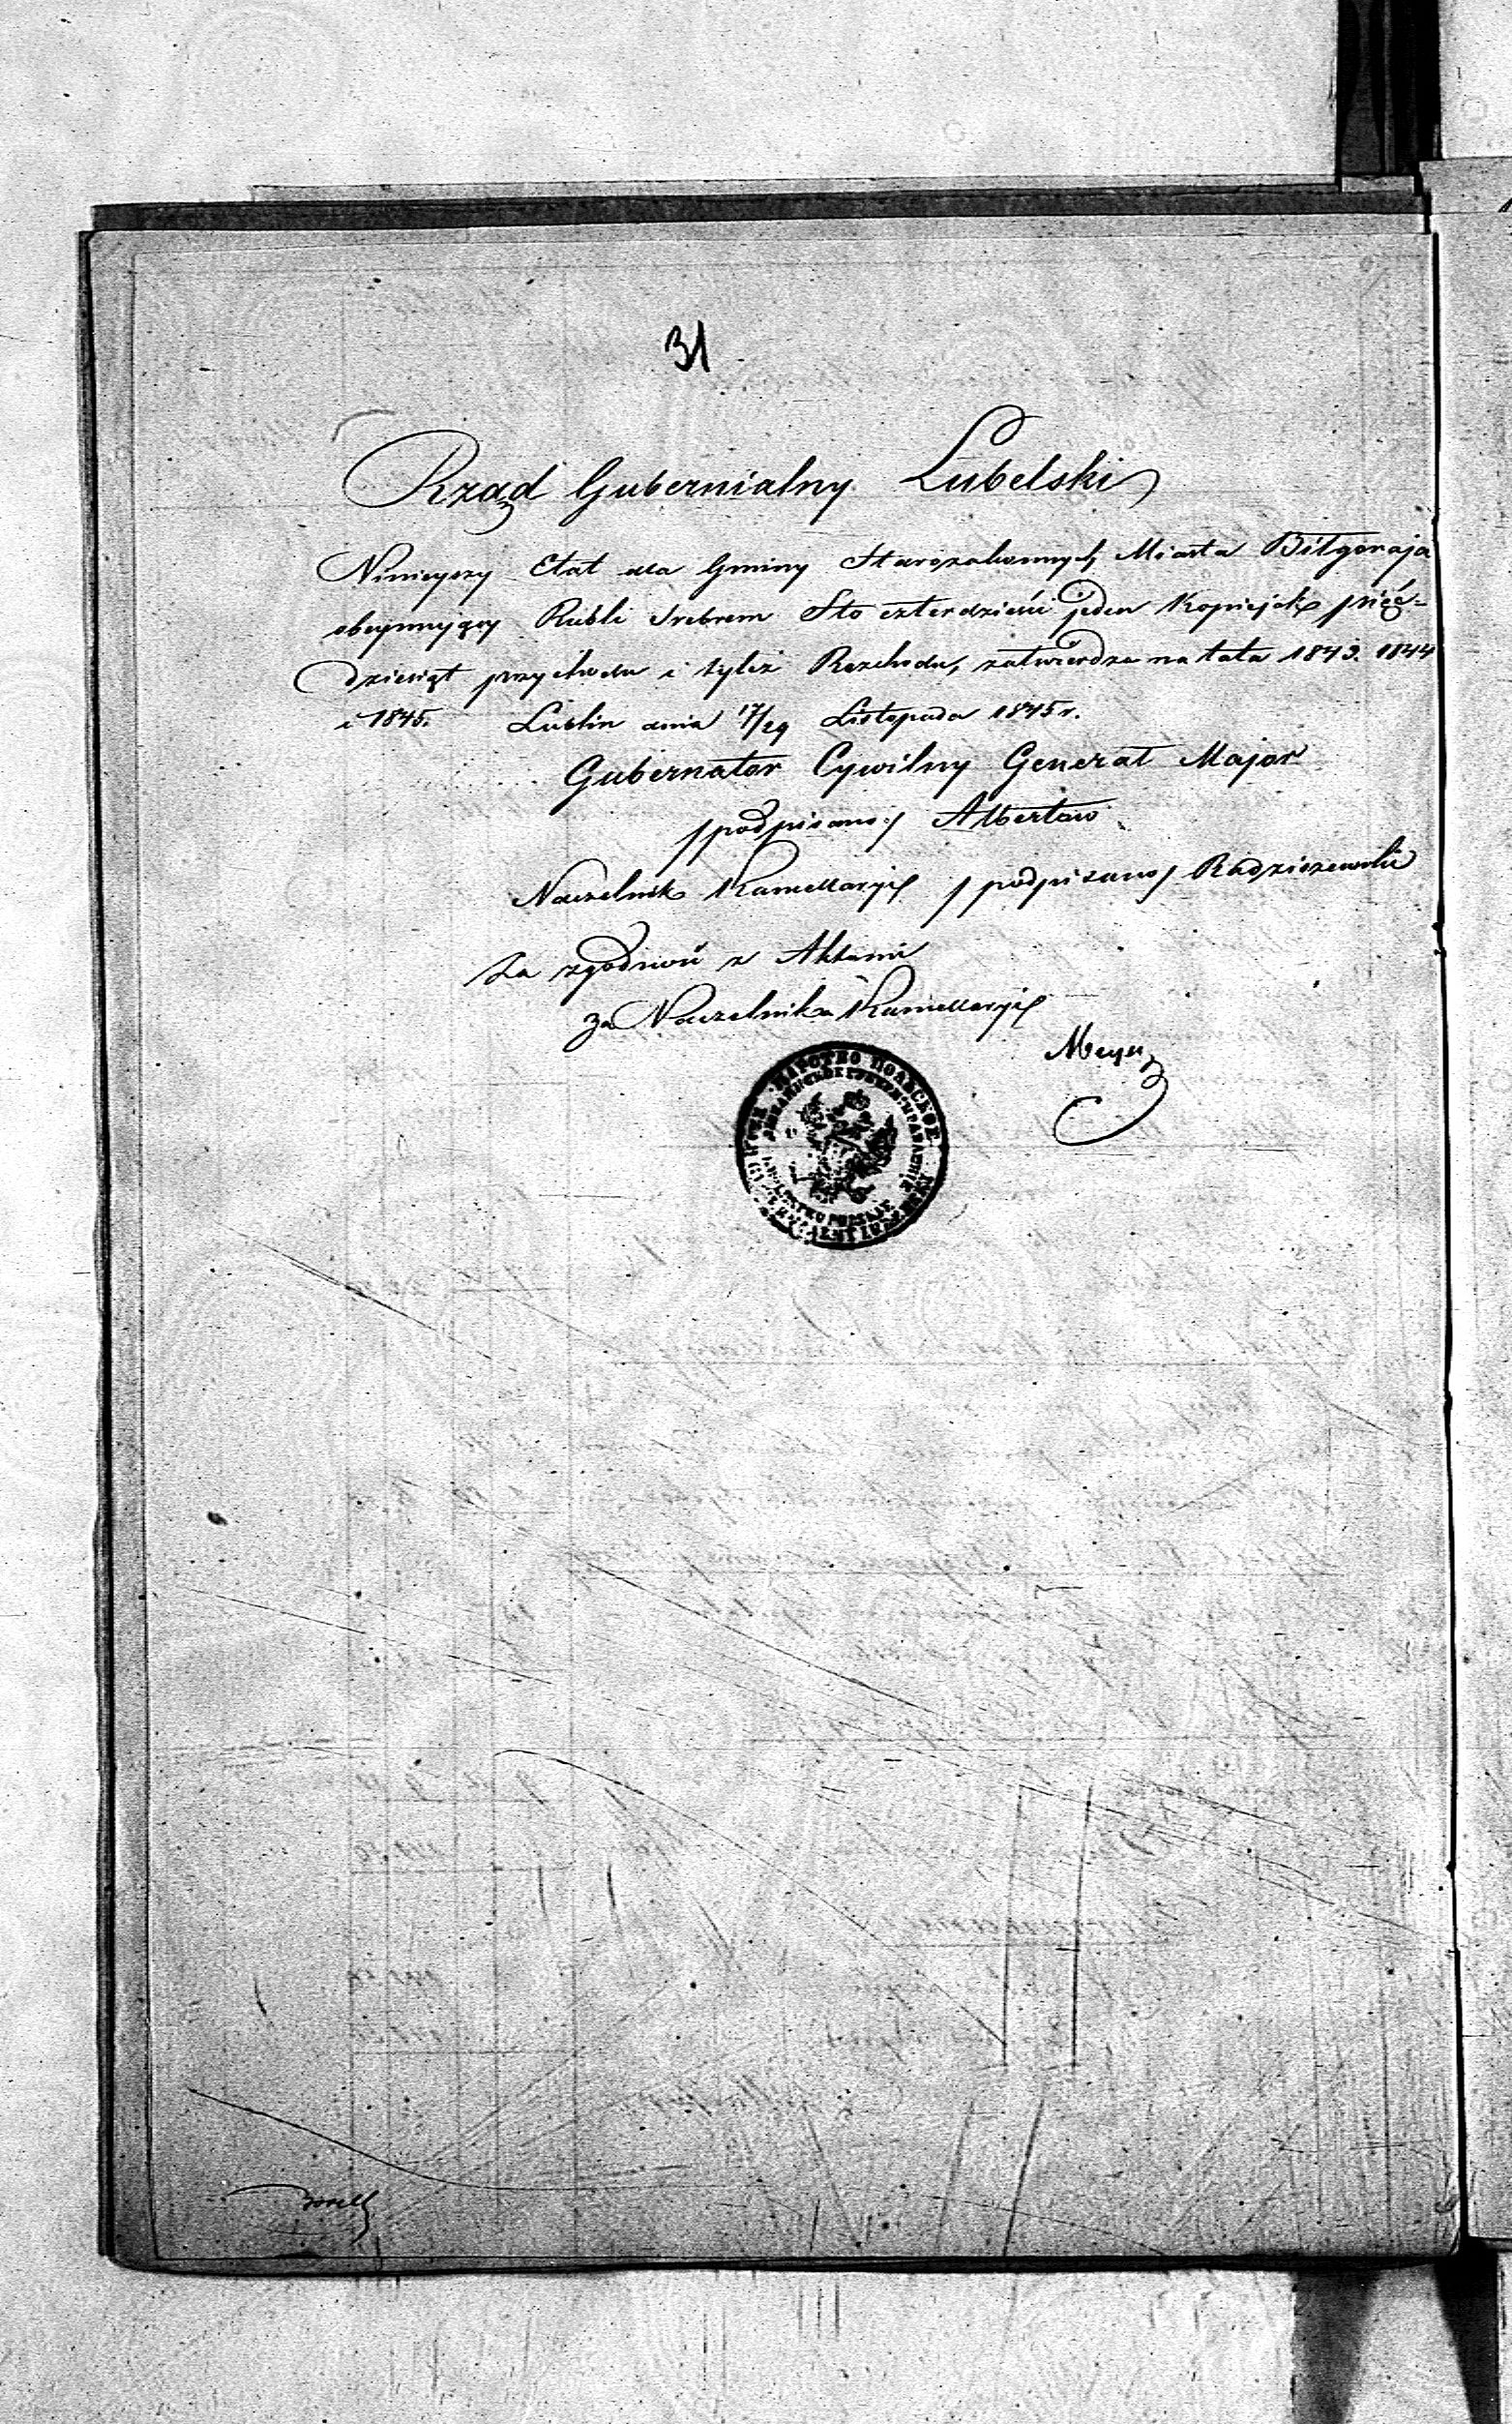 31
Rząd Gubernialny Lubelski
Niniejszy Etat dla Gminy Starozakonnych Miasta Biłgoraja
obejmujący Rubli Srebrem Sto czterdzieści jeden Kopiejek pięć=
dziesiąt przychodu i tyleż Rozchodu, zatwierdza na lata 1843. 1844
i 1845. Lublin dnia 17/29 Listopada 1845 r.
Gubernator Cywilny Generał Major
/podpisano/ Albertow
Naczelnik Kancellaryi /podpisano/ Radziszewski
Za zgodność z Aktami
za Naczelnika Kancellaryi
Meyer
ЦАРСТВО ПОЛЬСКОЕ